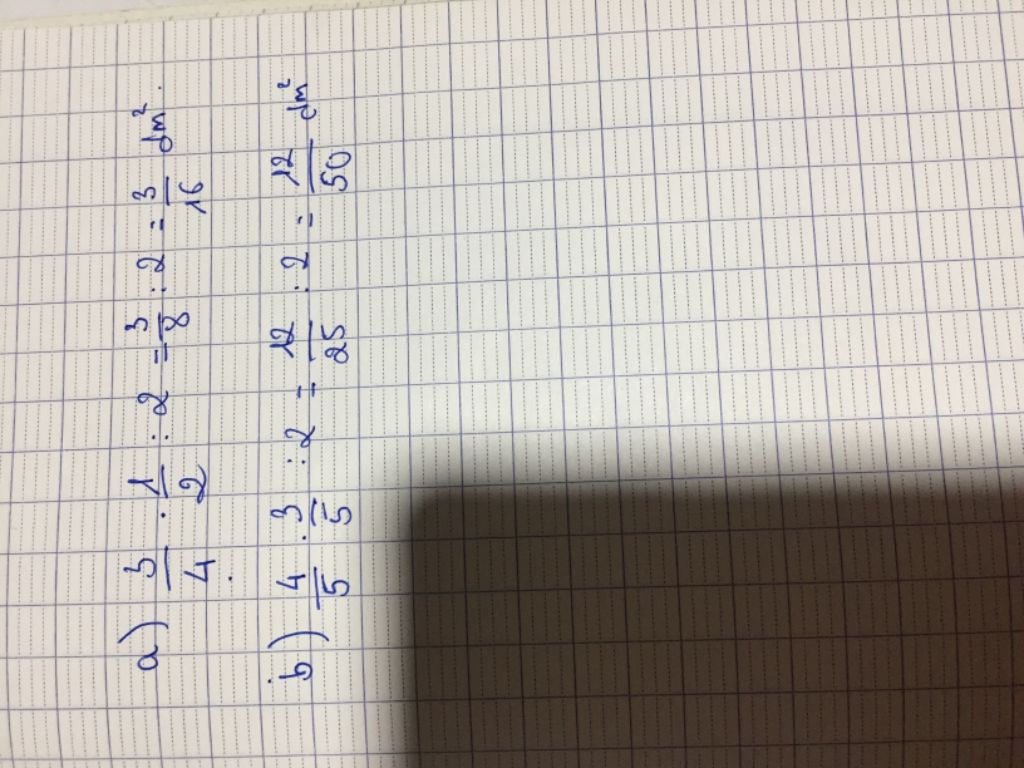 a) 3/4 . 1/2 : 2 = 3/8 : 2 = 3/16 dm².
b) 4/5 . 3/5 : 2 = 12/25 : 2 = 12/50 dm²